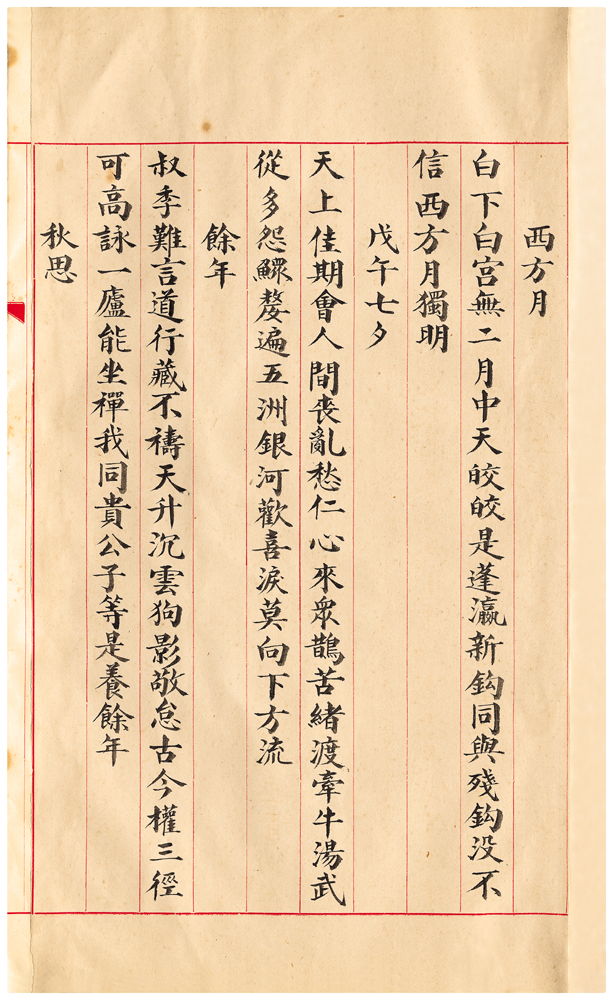 西方月
白下白宫無二月中天皎皎是蓬瀛新鈎同與殘鈎没不
信西方月獨明
戊午七夕
天上佳期會人間喪亂愁仁心來衆鵲苦緒渡牽牛湯武
從多怨鰥嫠遍五洲銀河歡喜淚莫向下方流
餘年
叔季難言道行藏不禱天升沉雲狗影敬怠古今權三徑
可高詠一廬能坐禪我同貴公子等是養餘年
秋思